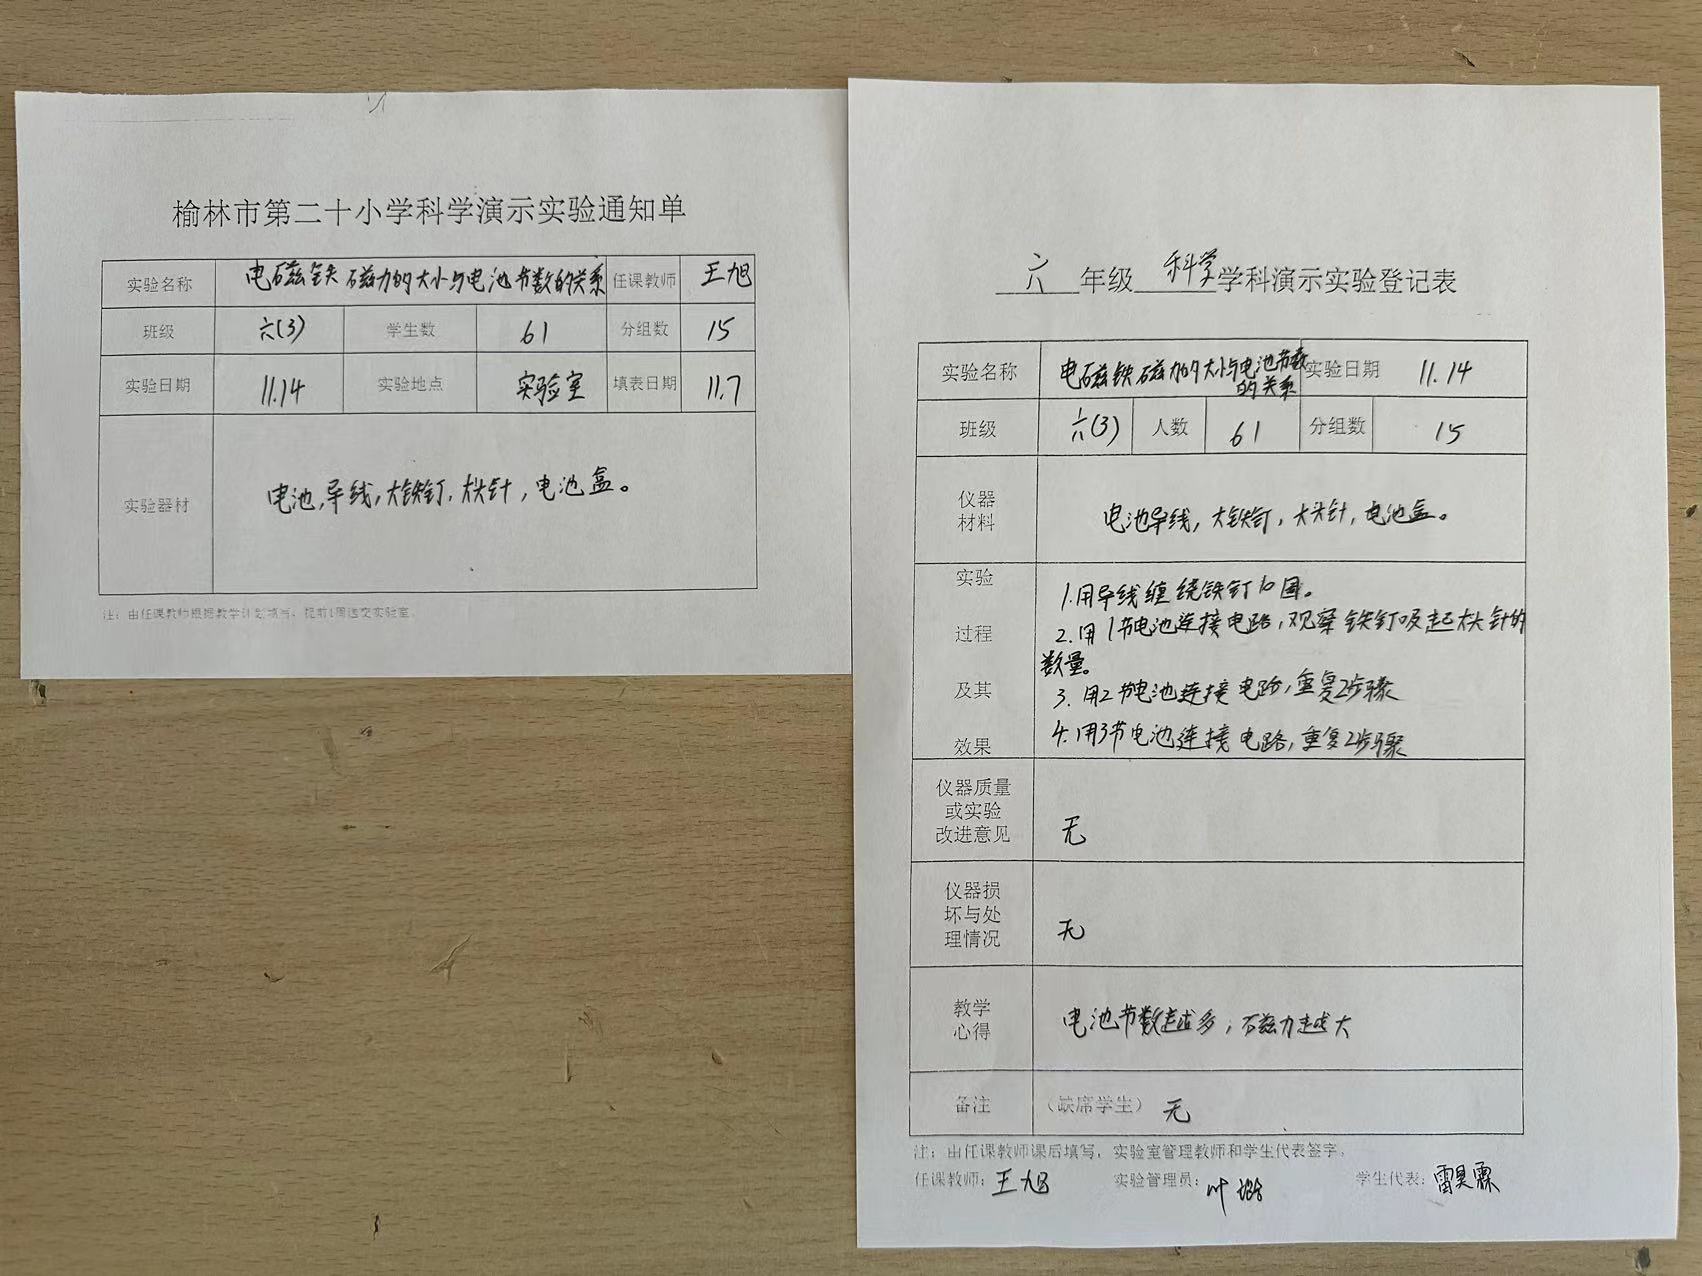 榆林市第二十小学科学演示实验通知单
实验名称 电磁铁磁力的大小与电池节数的关系 任课教师 王旭
班级 六(3) 学生数 61 分组数 15
实验日期 11.14 实验地点 实验室 填表日期 11.7
实验器材 电池,导线,大铁钉,大头针,电池盒。
注:由任课教师根据教学计划填写,提前1周送交实验室。
六 年级 科学 学科演示实验登记表
实验名称 电磁铁磁力的大小与电池节数 实验日期 11.14
的关系
班级 六(3) 人数 61 分组数 15
仪器
材料
电池导线,大铁钉,大头针,电池盒。
实验
过程
及其
效果
1.用导线缠绕铁钉10圈。
2.用1节电池连接电路,观察铁钉吸起大头针的
数量。
3.用2节电池连接电路,重复2步骤
4.用3节电池连接电路,重复2步骤
仪器质量
或实验
改进意见
无
仪器损
坏与处
理情况
无
教学
心得
电池节数越多,磁力越大
备注 (缺席学生) 无
注:由任课教师课后填写,实验室管理教师和学生代表签字。
任课教师:王旭 实验管理员:叶 学生代表:雷